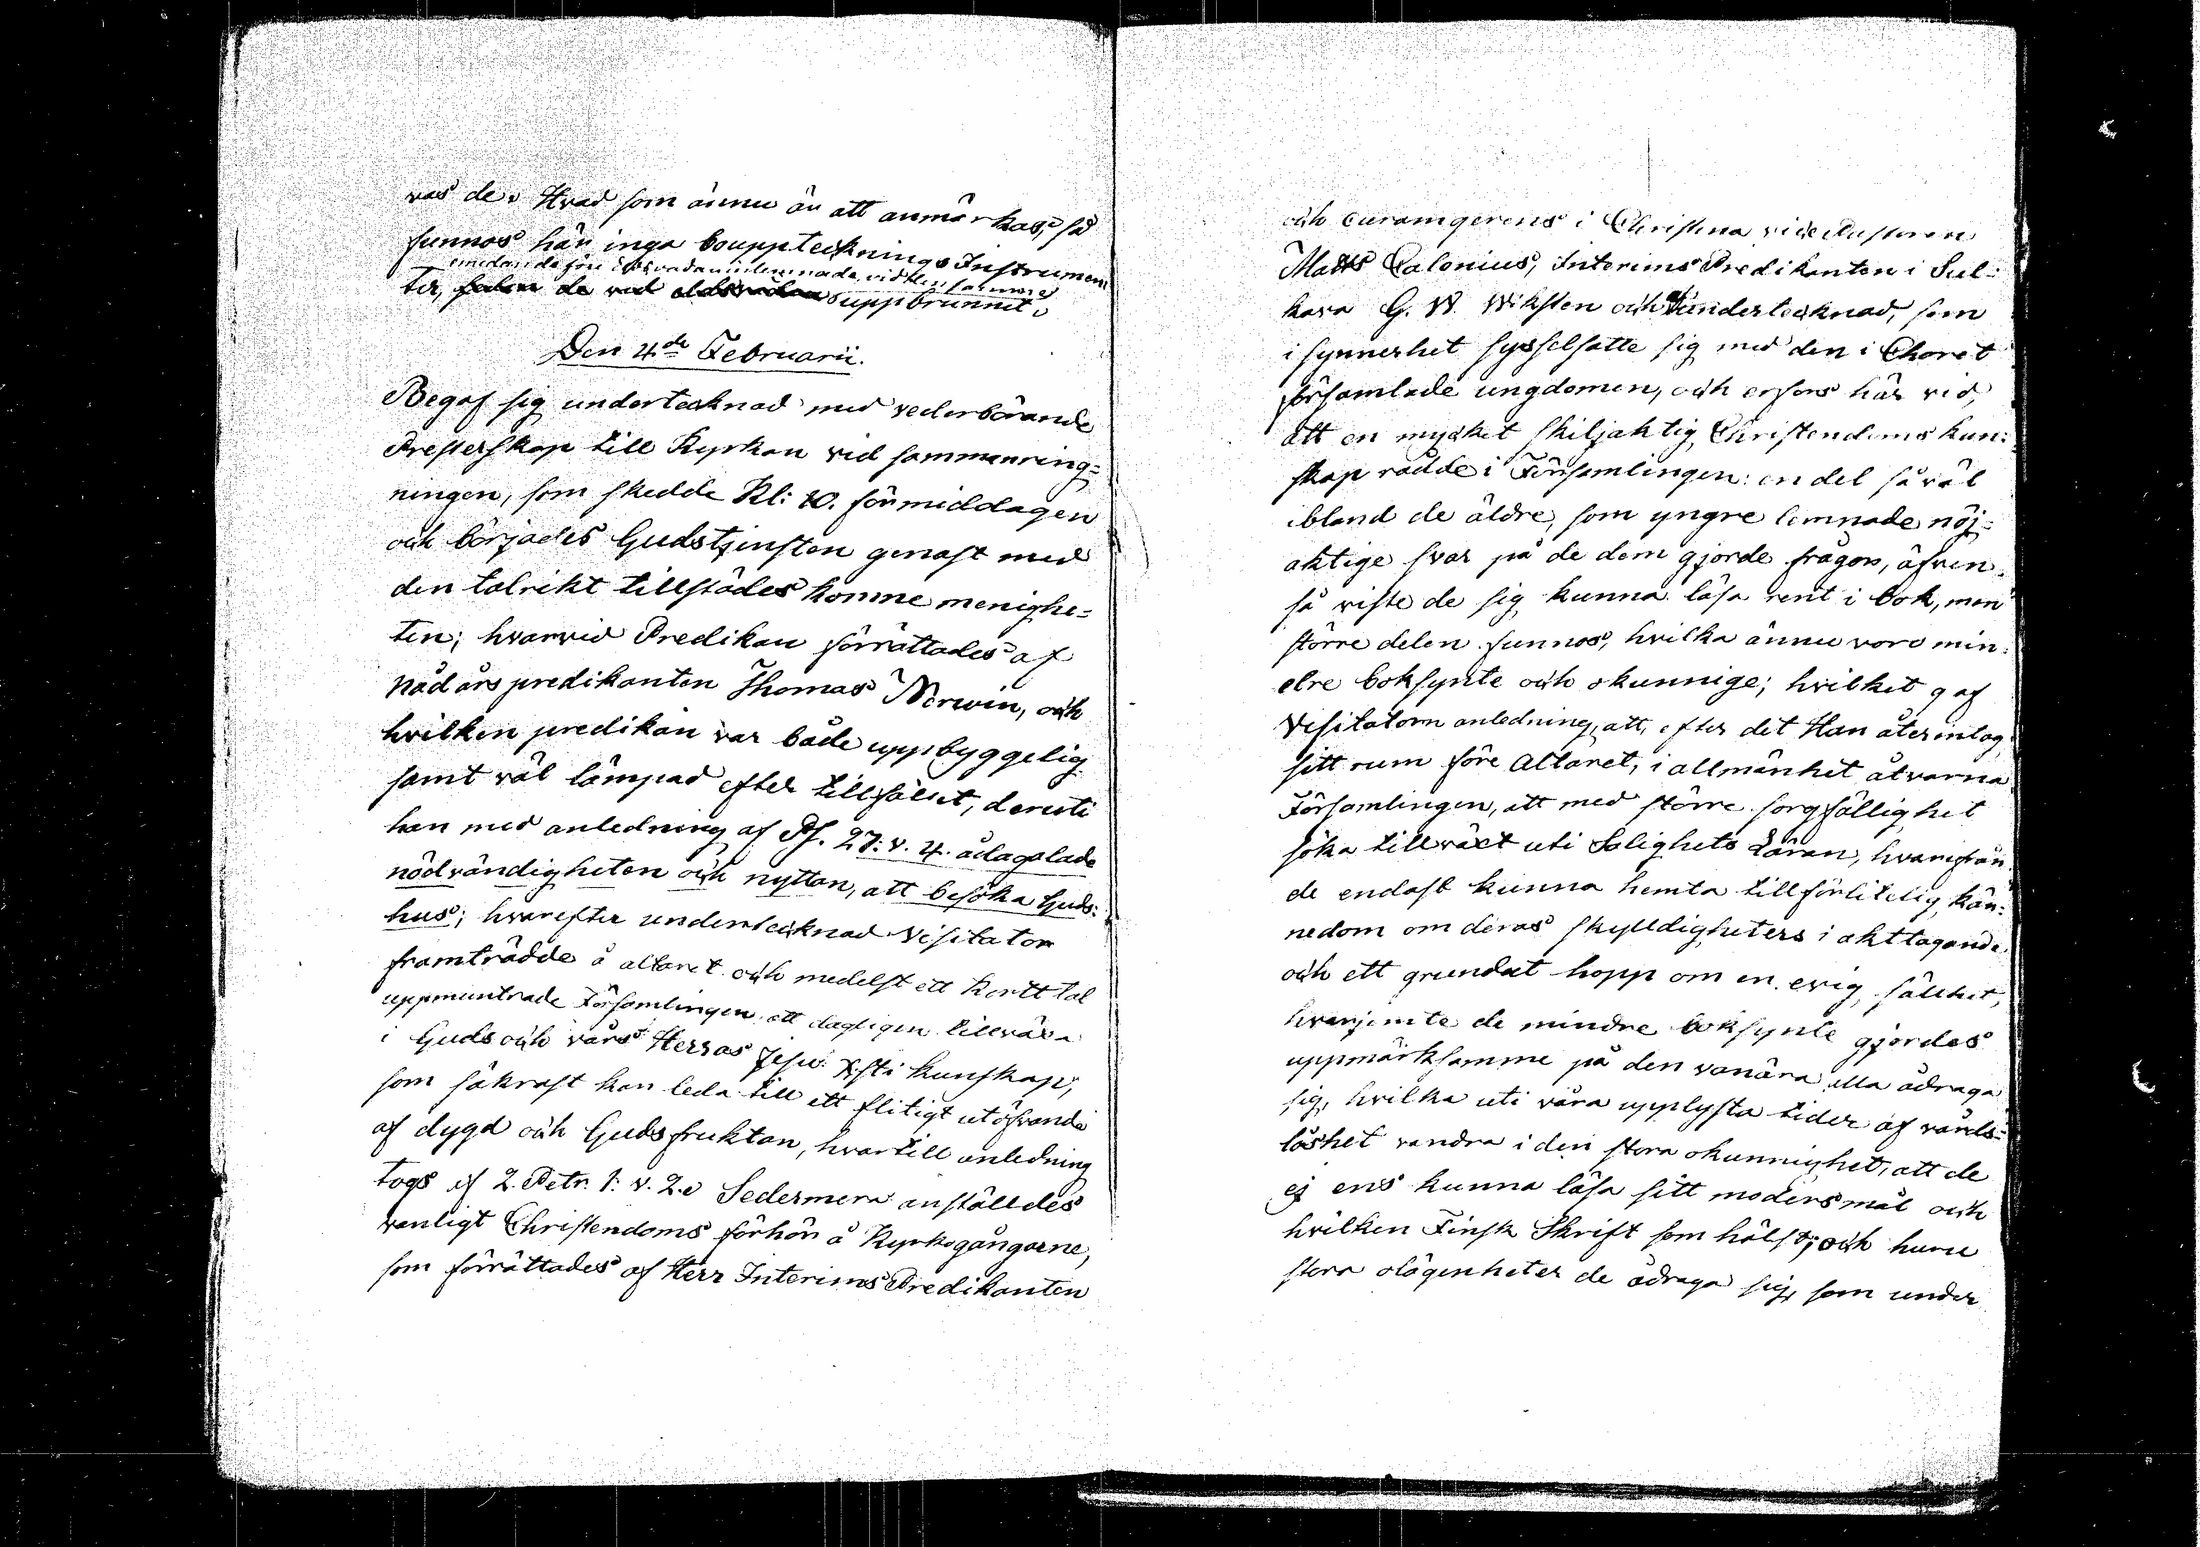 vas de. Hvad som ännu är att anmärkas, så
funnos här inga bouppteckningsInstrumen
emedan de före vid den samma
ter, de vid uppbrunnit.
Den 4de Februarii.
Begaf sig undertecknad med vederbörande
Presterskap till Kyrkan vid sammanring=
ningen, som skedde Kl: 10. förmiddagen
och börjades Gudstjensten genast med
den talrikt tillstädes komne menighe=
ten; hvarvid Predikan förrättades af
Nådårspredikanten Thomas Nerwin, och
hvilken predikan var både uppbyggelig
samt väl lämpad efter tillfället, deruti
han med anledning af Ps. 27: v. 4. ådagalade
nödvändigheten och nyttan, att besöka Guds=
hus; hvarefter undertecknad Visitator
framträdde å altaret och medelst ett kortt tal
uppmuntrade Församlingen att dageligen tillväxa
i Guds och vårs Herras Jesu Xsti kunskap,
som säkrast kan leda till ett flitigt utöfvande
af dygd och Gudsfruktan, hvartill anledning
togs af 2. Petr. 1: v. 2. Sedermera anställdes
vanligt Christendoms förhör å Kyrkogångarne,
som förrättades af Herr InterimsPredikanten
och curamgerens i Christina vice Pastoren
Matts Calonius, InterimsPredikanten i Sul=
kava G. W. Wiksten och af undertecknad, som
i synnerhet sysselsatte sig med den i Choret
församlade ungdomen, och erfors här vid,
att en mycket skiljaktig Christendoms kun=
skap rådde i Församlingen: en del så väl
ibland de äldre, som yngre lemnade nöj=
aktige svar på de dem gjorde frågor, äfven=
så viste de sig kunna läsa rent i bok, men
större delen funnos, hvilka ännu voro min=
dre boksynte och okunnige; hvilket gaf
Visitatorn anledning, att, efter det Han återintog
sitt rum före Altaret, i allmänhet åtvarna
Församlingen, att med större sorgfällighet
söka tillväxt uti Salighets Läran, hvarifrån
de endast kunna hemta tillförlitelig kän=
nedom om deras skylldigheters i akttagande
och ett grundat hopp om en evig sällhet,
hvarjemte de mindre boksynte gjordes
uppmärksamme på den vanära alla ådraga
sig, hvilka uti våra upplysta tider af vårds=
löshet vandra i den stora okunnighet, att de
ej ens kunna läsa sitt modersmål och
hvilken Finsk Skrift som hälst; och huru
stora olägenheter de ådraga sig, som under